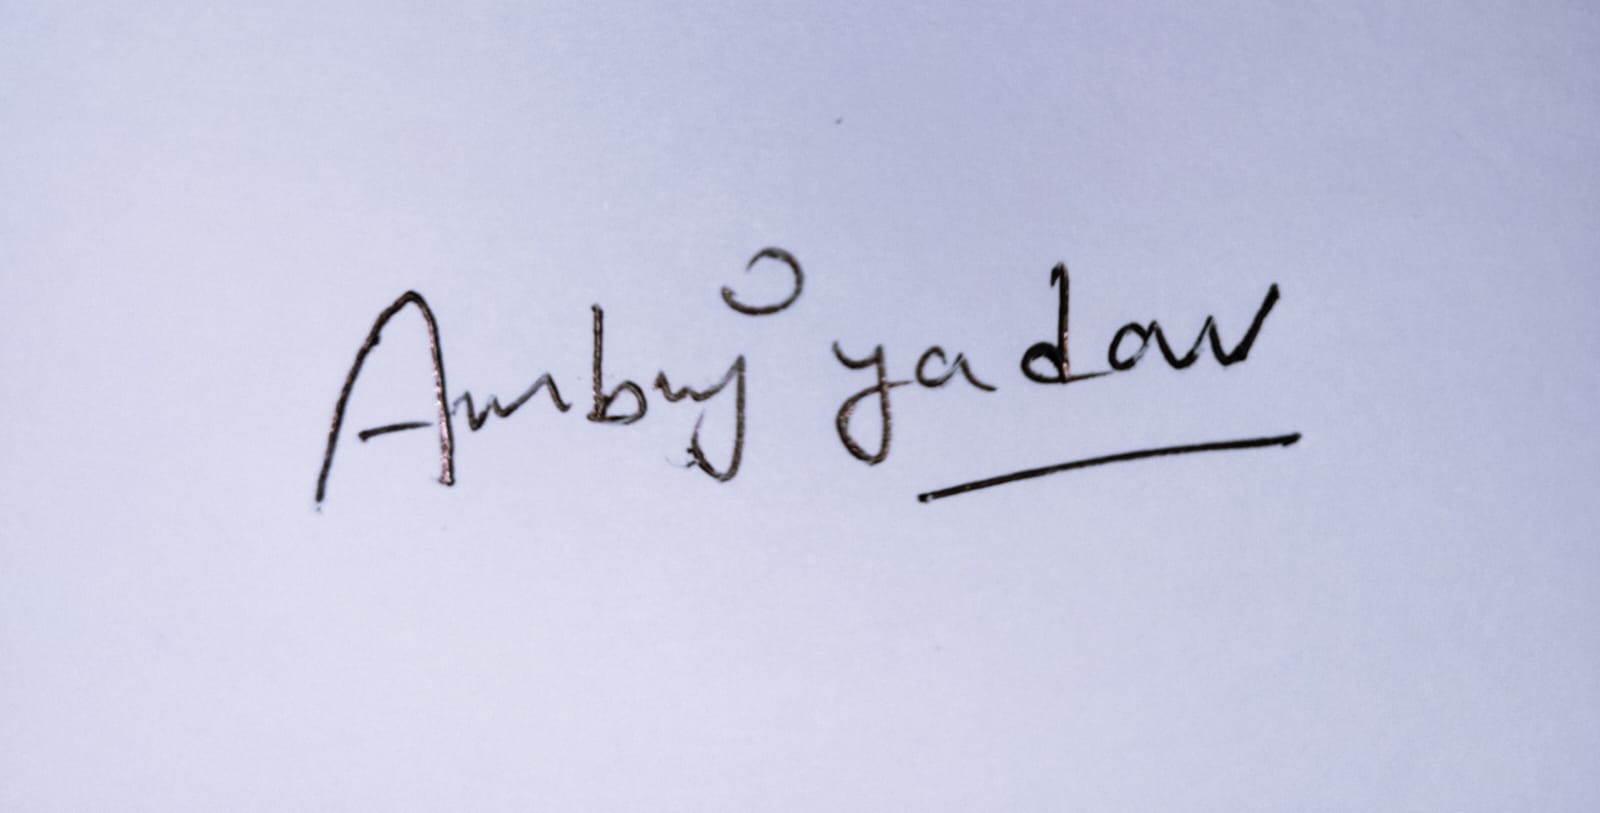 Ambuj yadav